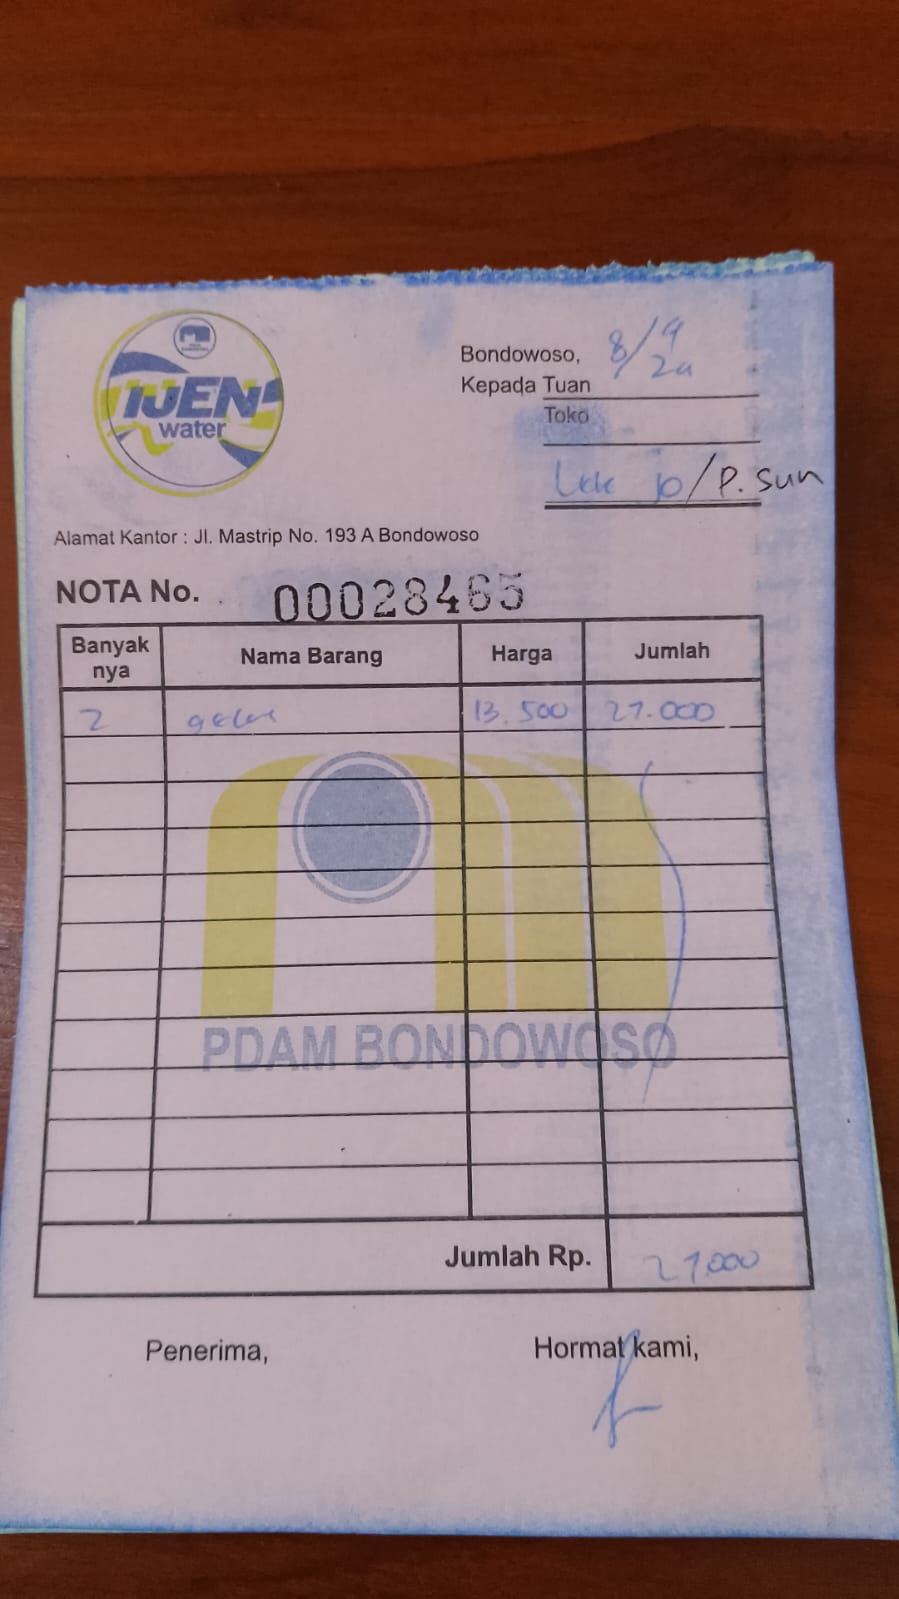 IJEN
water
Bondowoso, 8/9
Kepada Tuan
Toko
/P. Sun
Alamat Kantor : Jl. Mastrip No. 193 A Bondowoso
NOTA No. 00028465
Banyak nya Nama Barang Harga Jumlah
2 gelas 13.500 27.000
PDAM BONDOWOSO
Jumlah Rp. 27.000
Penerima, Hormat kami,